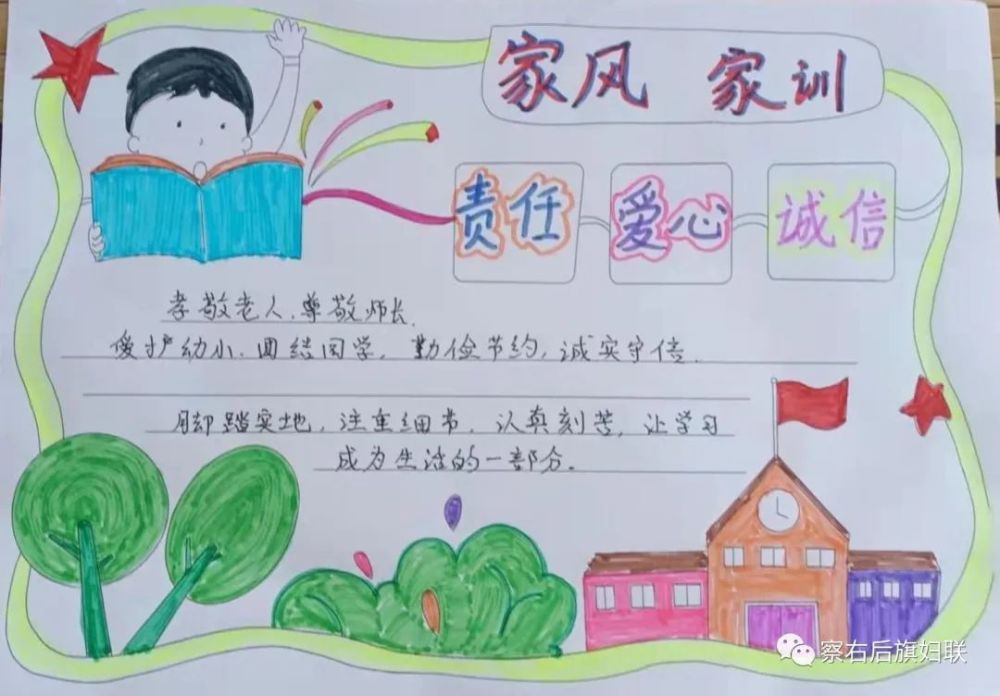 家风 家训
责任 爱心 诚信
孝敬老人、尊敬师长、
爱护幼小、团结同学、勤俭节约、诚实守信、
脚踏实地，注重细节，认真刻苦，让学习
成为生活的一部分。
察右后旗妇联